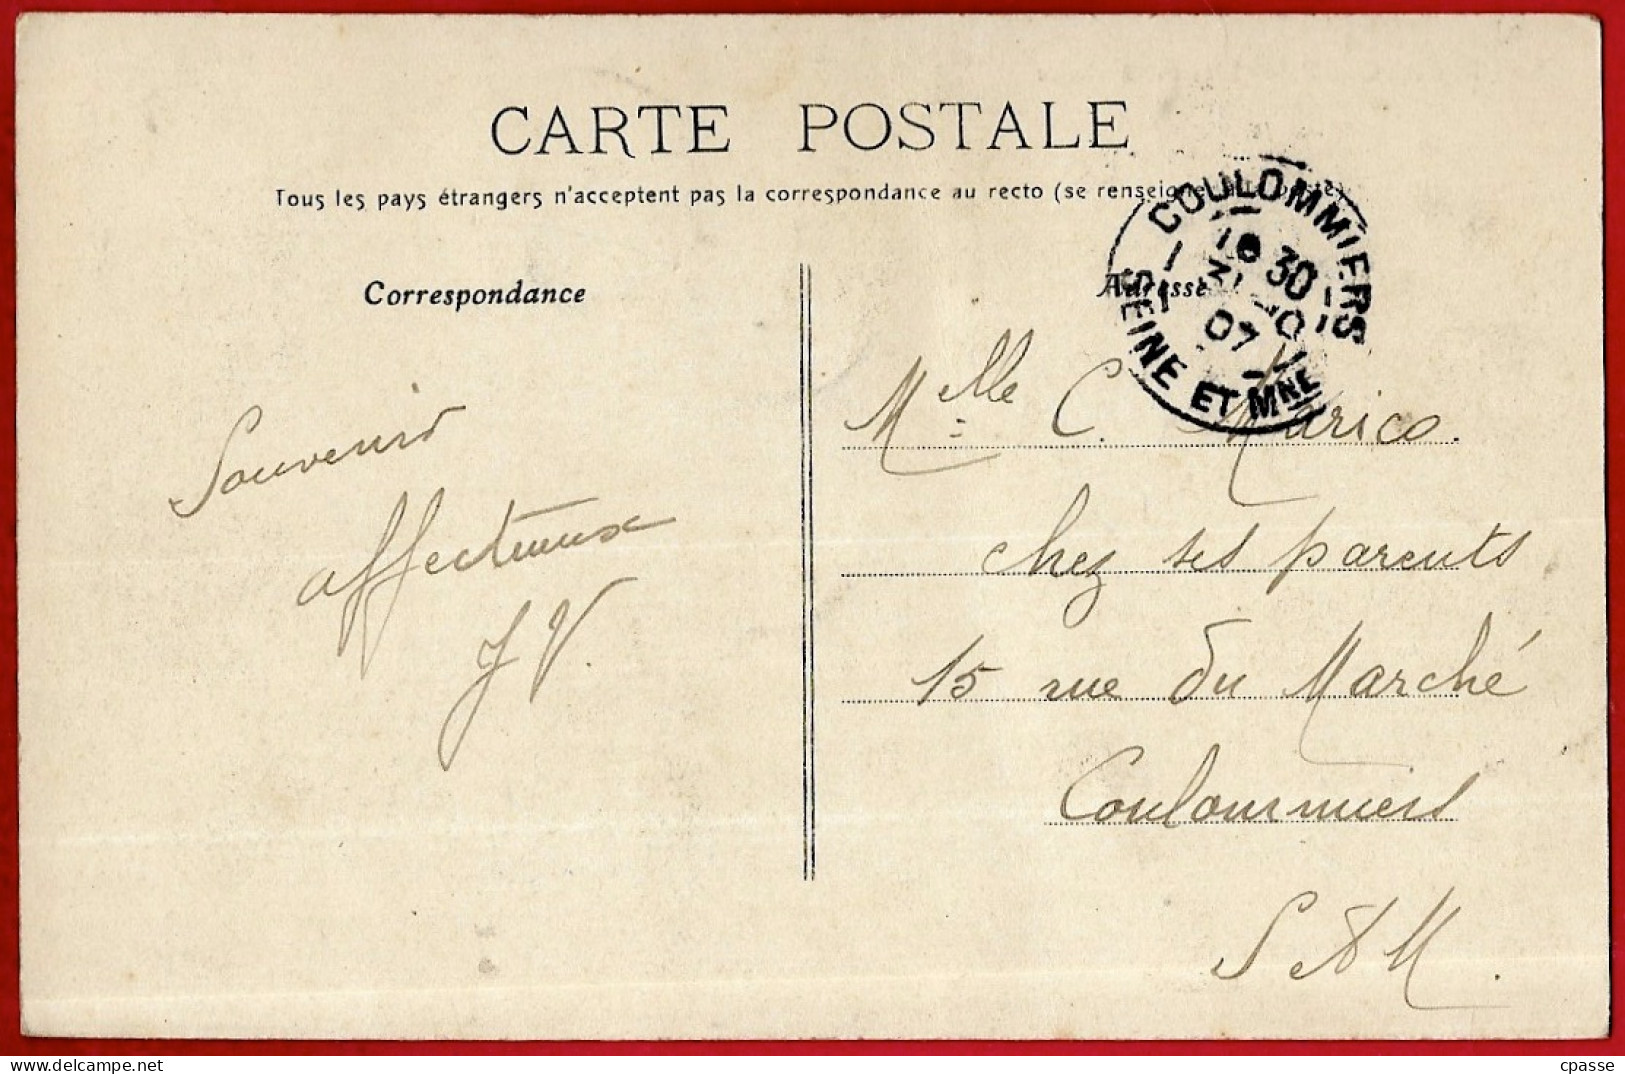 CARTE POSTALE
Tous les pays étrangers n'acceptent pas la correspondance au recto (se renseigner à la poste)
Correspondance
Souvenir
affectueux
J V.
Adresse
COULOMMIERS
30
07
SEINE ET MNE
Mlle C. Marico.
chez ses parents
15 rue du Marché
Coulommiers
S & M.
cpasse